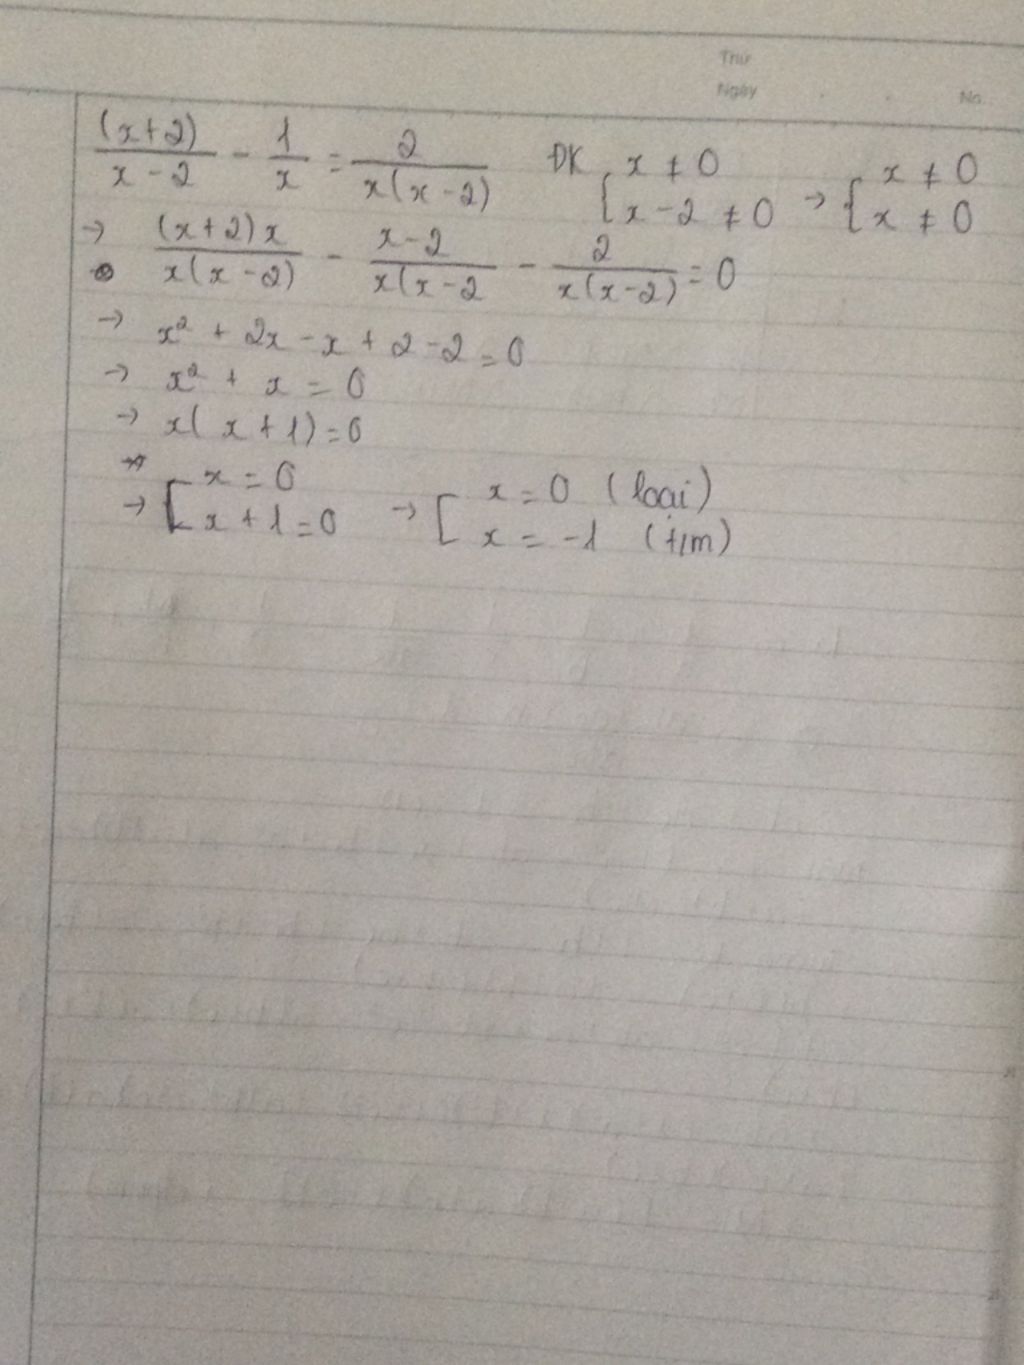 Thứ
Ngày . . No.
(x+2)/(x-2) - 1/x = 2/(x(x-2)) ĐK { x ≠ 0 ; x-2 ≠ 0 → { x ≠ 0 ; x ≠ 0
→ (x+2)x/(x(x-2)) - (x-2)/(x(x-2 - 2/(x(x-2)) = 0
→ x² + 2x - x + 2 - 2 = 0
→ x² + x = 0
→ x( x + 1) = 0
→ [ x = 0 ; x + 1 = 0 → [ x = 0 (loại) ; x = -1 (t/m)